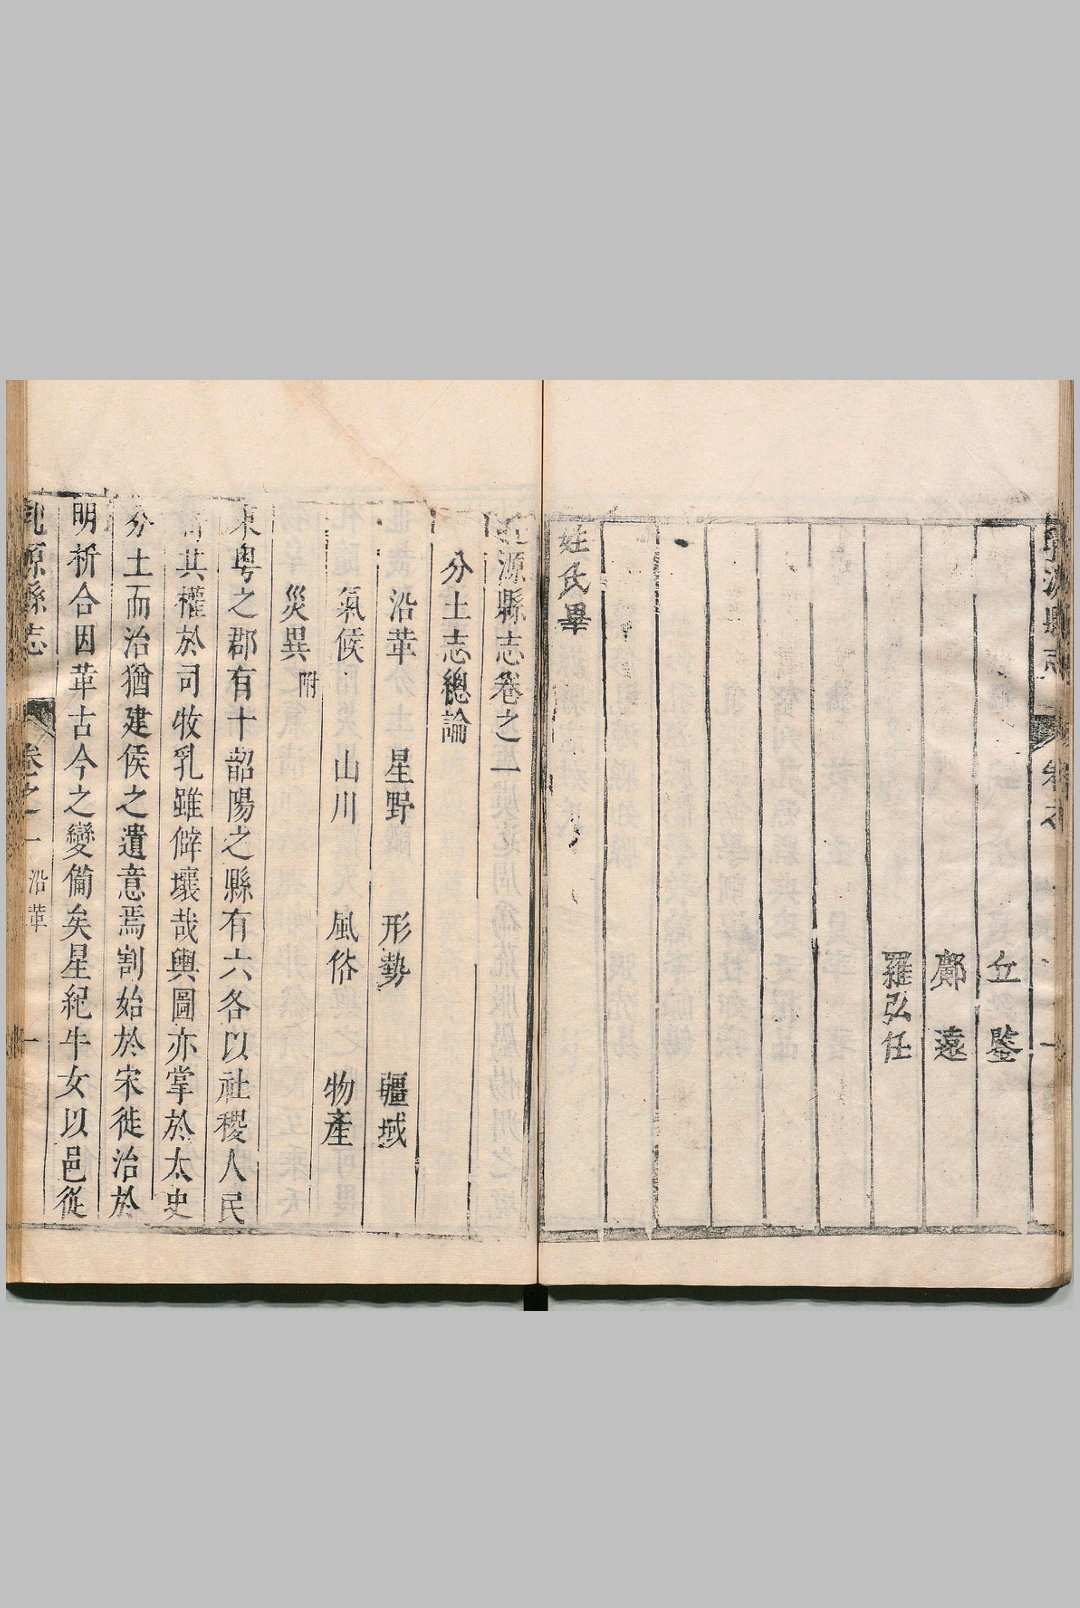 縣志
丘 鑒
鄺 遠
羅弘任
姓氏畢
源縣志卷之一
分土志總論
沿革 星野 形勢 疆域
氣候 山川 風俗 物產
災異附
東粵之郡有十韶陽之縣有六各以社稷人民
其權於司牧乳雖僻壤哉輿圖亦掌於太史
分土而治猶建侯之遺意焉割始於宋徙治於
明析合因革古今之變備矣星紀牛女以邑從
乳源縣志 卷之一 沿革 一